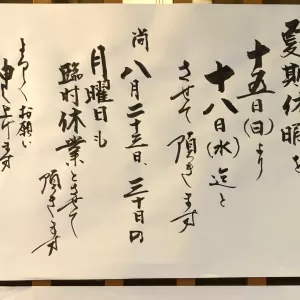 夏期休暇を
十五日(日)より
十八日(水)迄と
させて頂きます
尚八月二十三日、三十日の
月曜日も
臨時休業とさせて
頂きます
よろしくお願い
申し上げます